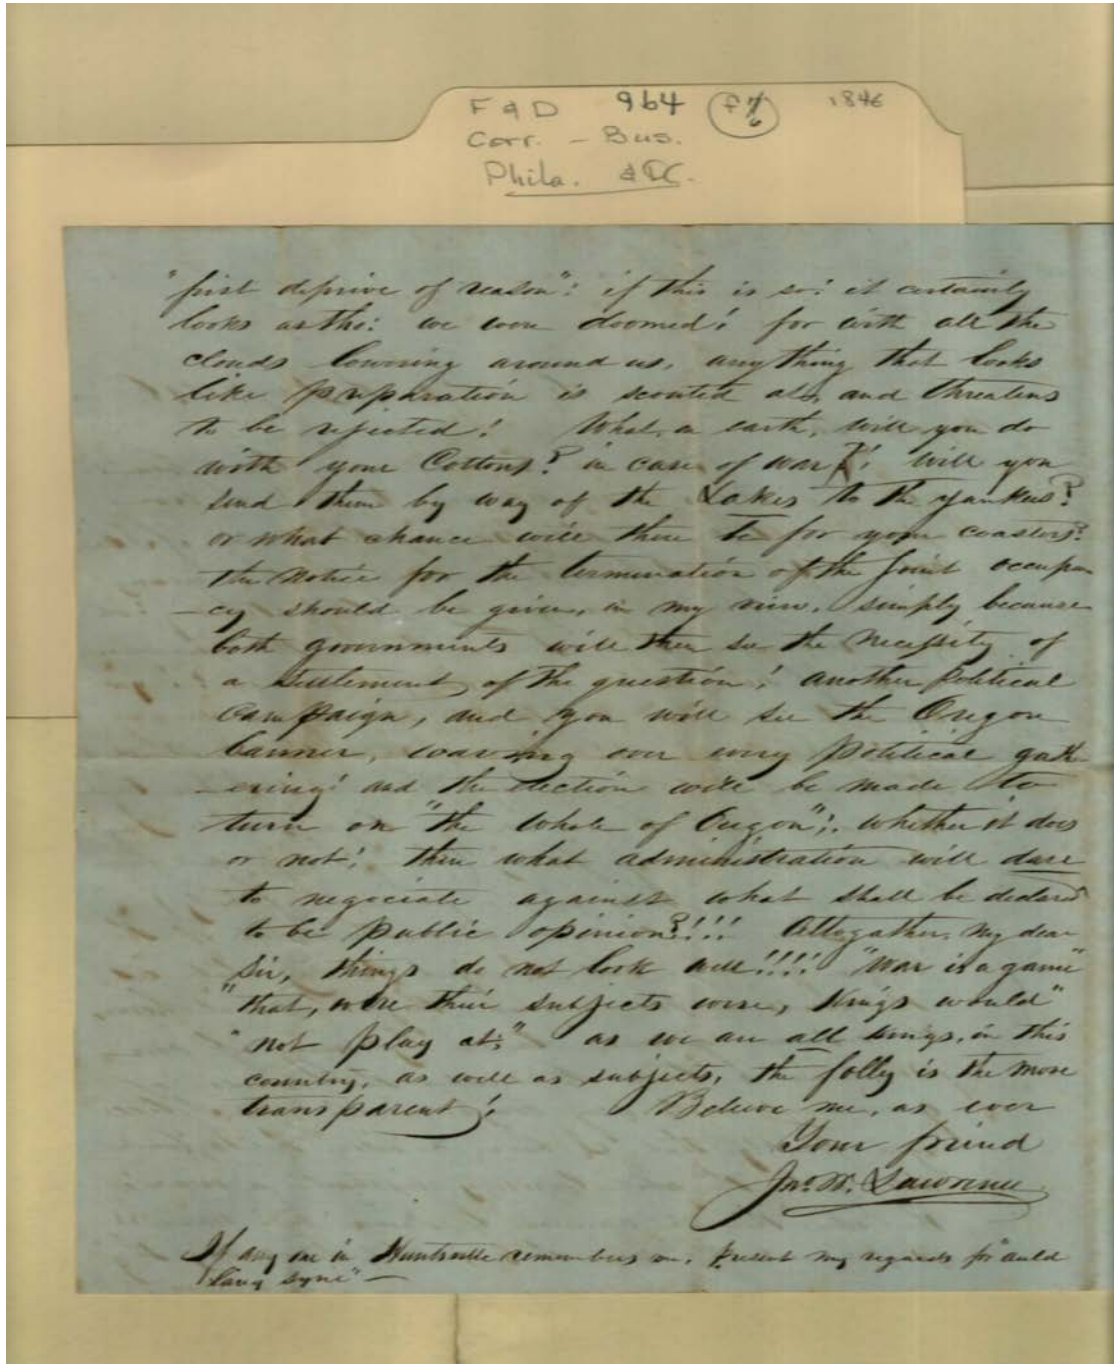 F & D 964 F 7/6 1846
Corr. - Bus.
Phila. & DC.
"first deprive of reason": if this is so! it certainly
looks as tho: we were doomed! for with all the
clouds lowering around us, anything that looks
like preparation is scouted at, and threatens
to be rejected! What, on earth, will you do
with your Cottons? in case of war! will you
send them by way of the Lakes to the Yankees?
or what chance will there be for your coasters?
the notice for the termination of the joint occupan
-cy should be given, in my view, simply because
both governments will then see the necessity of
a settlement of the question! another political
Campaign, and you will see the Oregon
banner, waving over every political gath
-ering! and the election will be made to
turn on "the whole of Oregon"; whether it does
or not! then what administration will dare
to negociate against what shall be declared
to be public opinion?!!! Altogather, my dear
Sir, things do not look well!!!! "War is a game"
"that, were their subjects wise, Kings would"
"not play at;" as we are all kings, in this
country, as well as subjects, the folly is the more
transparent! Believe me, as ever
Your friend
Jno. W. Lawrence
If any one in Huntsville remembers me, present my regards for "auld
lang syne" —